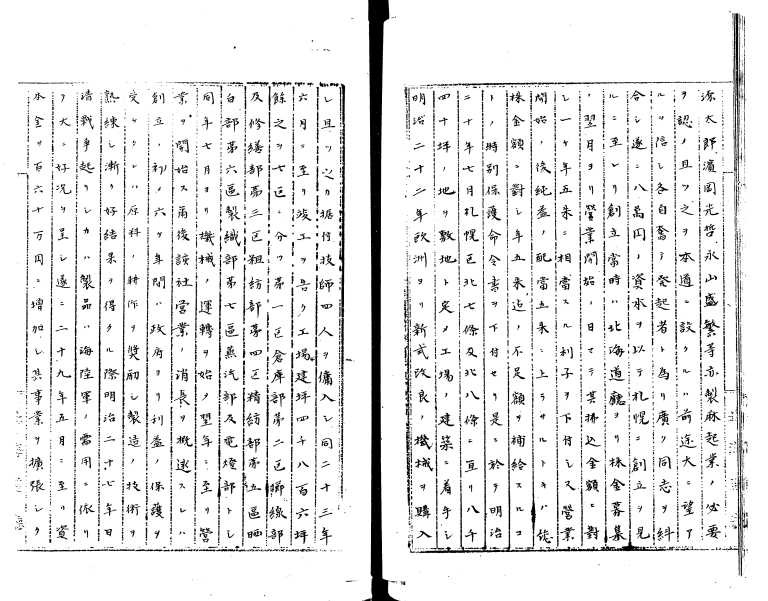 源太郎濱岡光哲永山盛繁等亦製麻起業ノ必要
ヲ認ノ且ツ之ヲ本道ニ設クルハ前途大ニ望ア
ルヲ信シ各自奮テ発起者ト為リ廣ク同志ヲ糾
合シ遂ニ八萬円ノ資本ヲ以テ札幌ニ創立ヲ見
ルニ至レリ創立當時ハ北海道廳ヨリ株金募集
ノ翌月ヨリ營業開始ノ日マテ其拂込金額ニ對
シ一ケ年五朱ニ相當スル利子ヲ下付シ又營業
開始ノ後純益ノ配當五朱ニ上ラサルトキハ
株金額ニ對シ年五朱迠ノ不足額ヲ補給スルコ
トノ特別保護命令書ヲ下付セリ是ニ於テ明治
二十年七月札幌区北七條及北八條ニ亘リ八千
四十坪ノ地ヲ敷地ト定メ工場ノ建築ニ着手シ
明治二十二年歐洲ヨリ新式改良ノ機械ヲ購入
シ且ツ之カ据付技師四人ヲ傭入シ同二十三年
六月ニ至リ竣工ヲ告ク工場建坪四千八百六坪
餘之ヲ七区ニ分ツ第一区倉庫部第二区梛線部
及修繕部第三区粗紡部第四区精紡部第五區晒
白部第六區製織部第七區蒸汽部及電燈部トシ
同年七月ヨリ機械ノ運轉ヲ始ノ翌年ニ至リ營
業ヲ開始ス爾後該社営業ノ消長ヲ概述スレハ
創立ノ初ノ六ケ年間ハ政府ヨリ利益ノ保護ヲ
受ケシハ原料ノ耕作ヲ奨励シ製造ノ技術ヲ
熟練シ漸ク好結果ヲ得タル際明治二十七年日
清戰争起リシカハ製品ハ海陸軍ノ需用ニ依リ
ヲ大ニ好况ヲ呈シ遂ニ二十九年五月ニ至リ資
本金ヲ百六十万円ニ増加シ其事業ヲ擴張シタ